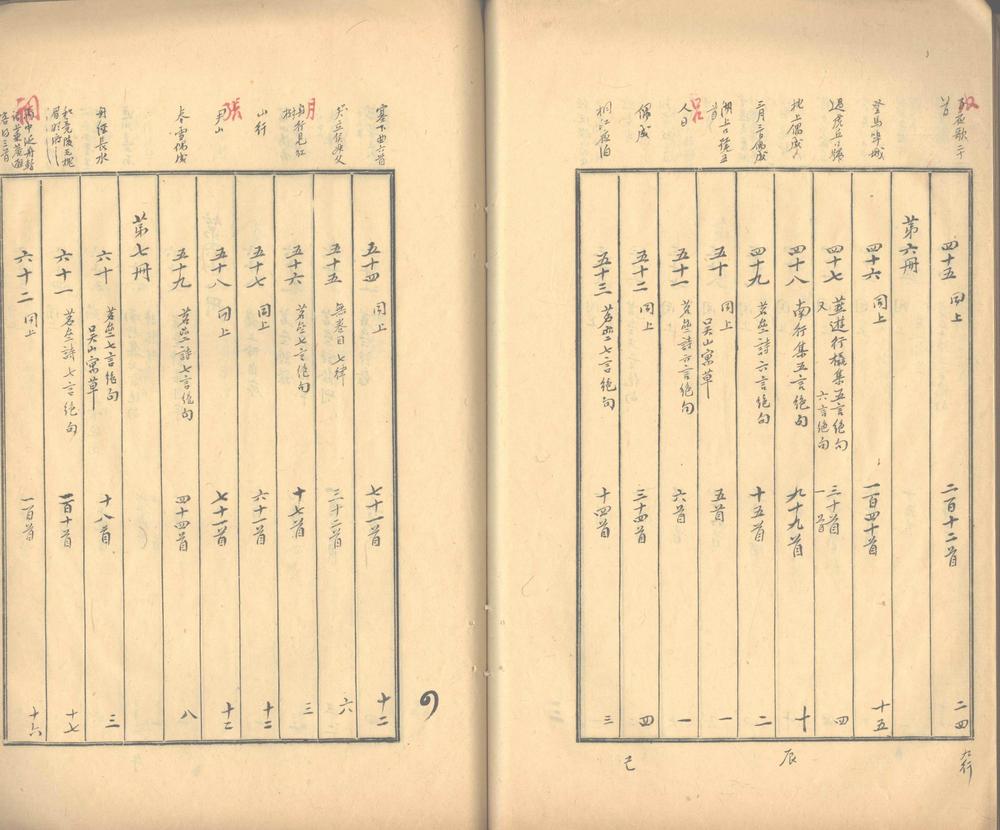 四十五 同上 二百十二首 二四
第六冊
登馬鞍城
四十六 同上 一百四十首 十五
四十七 蕪遊行橋集五言絕句 三十首 四
又 六言絕句 一首
池上偶成
四十八 南行集五言絕句 九十九首 十
三月三日偶成
四十九 茗壘詩六言絕句 十五首 二
五十 同上 五首 一
吴山寓草
人日
五十一 茗壘詩六言絕句 六首 一
偶成
五十二 同上 三十四首 四
桐江夜泊
五十三 茗壘七言絕句 十四首 三
九行
辰
己
塞下曲六首
五十四 同上 七十一首 十二
五十五 無卷目 七律 三十二首 六
舟行見紅樹
五十六 茗壘七言絕句 十七首 三
山行
五十七 同上 六十一首 十二
五十八 同上 七十一首 十二
春雪偶成
五十九 茗壘詩七言絕句 四十四首 八
第七冊
舟經長水
六十 茗壘七言絕句 十八首 三
吴山寓草
六十一 茗壘詩七言絕句 一百十首 十七
六十二 同上 一百首 十六